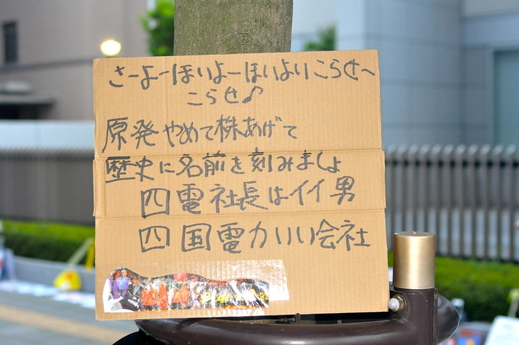 さーよーほいよーほいよりこらせ〜
こらせ♪
原発やめて株あげて
歴史に名前を刻みましょ
四電社長はイイ男
四国電力いい会社